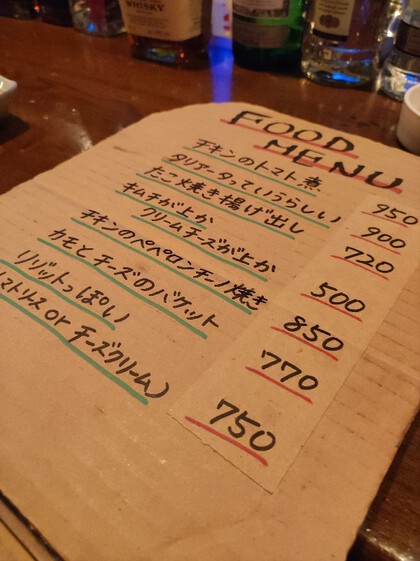 WHISKY
FOOD
MENU
チキンのトマト煮 950
タリアータっていうらしい 900
たこ焼き揚げ出し 720
キムチが上か
クリームチーズが上か 500
チキンのペペロンチーノ焼き 850
カモとチーズのバケット 770
リゾットっぽい
マトソース or チーズクリーム) 750